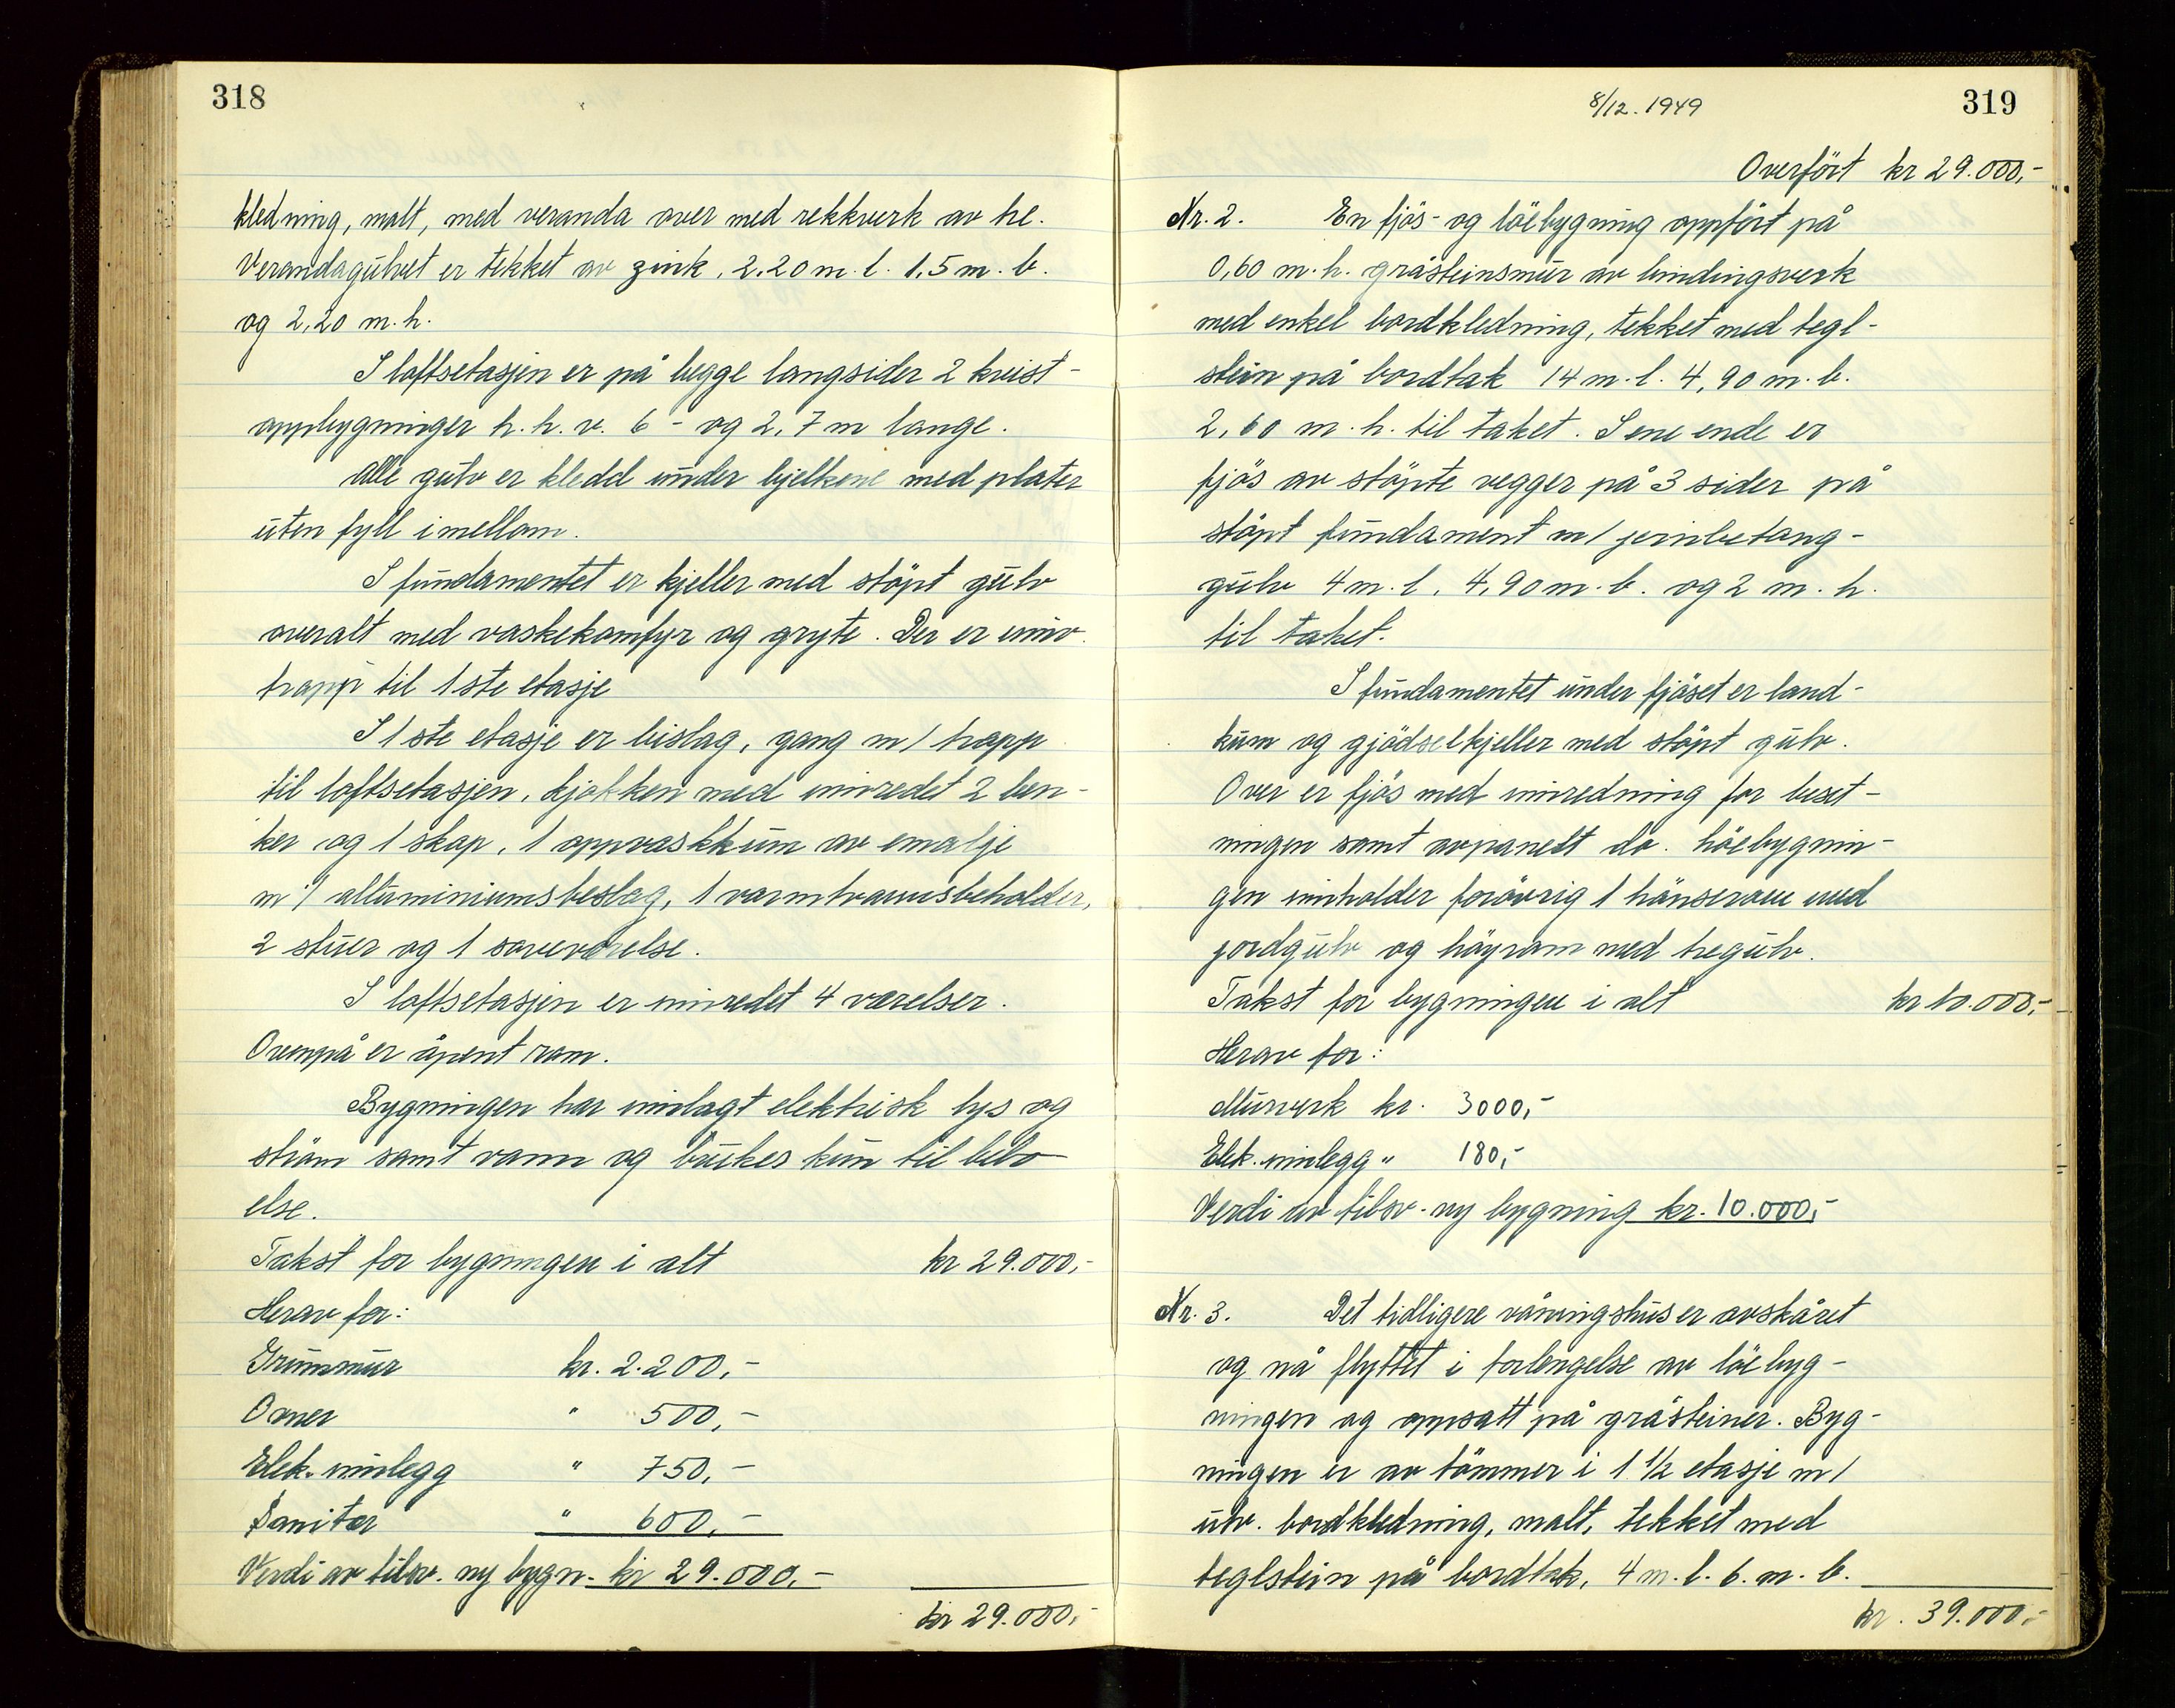 318
kledning, malt, med veranda over med rekkverk av tre.
Verandagulvet er tekket av zink, 2,20 m. l. 1,5 m. b.
og 2,20 m. h.
I loftsetasjen er på begge langsider 2 kvist-
oppbygninger h.h.v. 6 - og 2,7 m lange.
Alle gulv er kledd under bjelkene med plater
uten fyll imellom.
I fundamentet er kjeller med stöpt gulv
overalt med vaskekomfyr og gryte. Der er innv.
trapp til 1ste etasje
I 1ste etasje er bislag, gang m/ trapp
til loftsetasjen, kjökken med innredet 2 ben-
ker og 1 skap, 1 oppvaskkum av emalje
m/ alluminiumsbeslag, 1 varmtvannsbeholder,
2 stuer og 1 soveværelse.
I loftsetasjen er innredet 4 værelser.
Ovenpå er åpent rom.
Bygningen har innlagt elektrisk lys og
ström samt vann og brukes kun til bebo-
else.
Takst for bygningen i alt kr 29.000,-
Herav for:
Grunnmur kr. 2.200,-
Ovner " 500,-
Elek. innlegg " 750,-
Sanitær " 600,-
Verdi av tilsv. ny bygn. kr 29.000,-
kr 29.000,-
8/12. 1949
319
Overfört kr 29.000,-
Nr. 2. En fjös- og löebygning oppfört på
0,60 m. h. gråsteinsmur av bindingsverk
med enkel bordkledning, tekket med tegl-
stein på bordtak 14 m. l. 4,90 m. b.
2,60 m. h. til taket. I ene ende er
fjös av stöpte vegger på 3 sider på
stöpt fundament m/ jernbetong-
gulv 4 m. l. 4,90 m. b. og 2 m. h.
til taket.
I fundamentet under fjöset er land-
kum og gjödselkjeller med stöpt gulv.
Over er fjös med innredning for beset-
ningen samt avpanelt do. Löebygnin-
gen innholder forövrig 1 hönserom med
jordgulv og höyrom med tregulv.
Takst for bygningen i alt kr 10.000,-
Herav for:
Murverk kr. 3000,-
Elek. innlegg " 180,-
Verdi av tilsv. ny bygning kr. 10.000,-
Nr. 3. Det tidligere våningshus er avskåret
og nå flyttet i forlengelse av löebyg-
ningen og oppsatt på gråsteiner. Byg-
ningen er av tömmer i 1 1/2 etasje m/
utv. bordkledning, malt, tekket med
teglstein på bordtak, 4 m. l. 6. m. b.
kr. 39.000,-